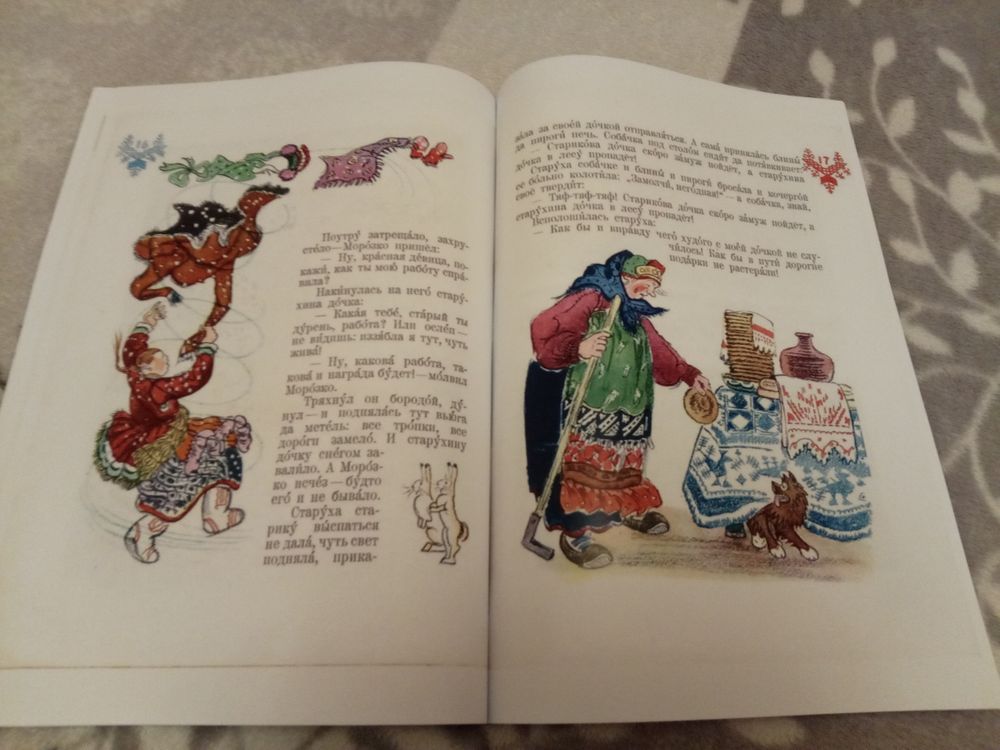 16
Поутру́ затреща́ло, захру-
сте́ло — Моро́зко пришёл:
— Ну, кра́сная де́вица, по-
кажи́, как ты мою́ рабо́ту спра́-
вила?
Наки́нулась на него́ стару́-
хина до́чка:
— Кака́я тебе́, ста́рый ты
ду́рень, рабо́та? Или осле́п —
не ви́дишь: иззя́бла я тут, чуть
жива́!
— Ну, какова́ рабо́та, та-
кова́ и награ́да бу́дет! — мо́лвил
Моро́зко.
Тряхну́л он бородо́й, ду́-
нул — и подняла́сь тут вью́га
да мете́ль: все тро́пки, все
доро́ги замело́. И стару́хину
до́чку сне́гом за-
вали́ло. А Моро́з-
ко исче́з — бу́дто
его́ и не быва́ло.
Стару́ха ста-
рику́ вы́спаться
не дала́, чуть свет
подняла́, прика-
17
за́ла за свое́й до́чкой отправля́ться. А сама́ приняла́сь блины́
да пироги́ печь. Соба́чка под столо́м сиди́т да потя́вкивает:
— Старико́ва до́чка ско́ро за́муж пойдёт, а стару́хина
до́чка в лесу́ пропадёт!
Стару́ха соба́чке и блины́ и пироги́ броса́ла и кочерго́й
её бо́льно колоти́ла: „Замолчи́, него́дная!“ — а соба́чка, знай,
своё тверди́т:
— Тяф-тяф-тяф! Старико́ва до́чка ско́ро за́муж пойдёт, а
стару́хина до́чка в лесу́ пропадёт!
Всполоши́лась стару́ха:
— Как бы и впра́вду чего́ худо́го с мое́й до́чкой не слу-
чи́лось! Как бы в пути́ дороги́е
пода́рки не растеря́ли!